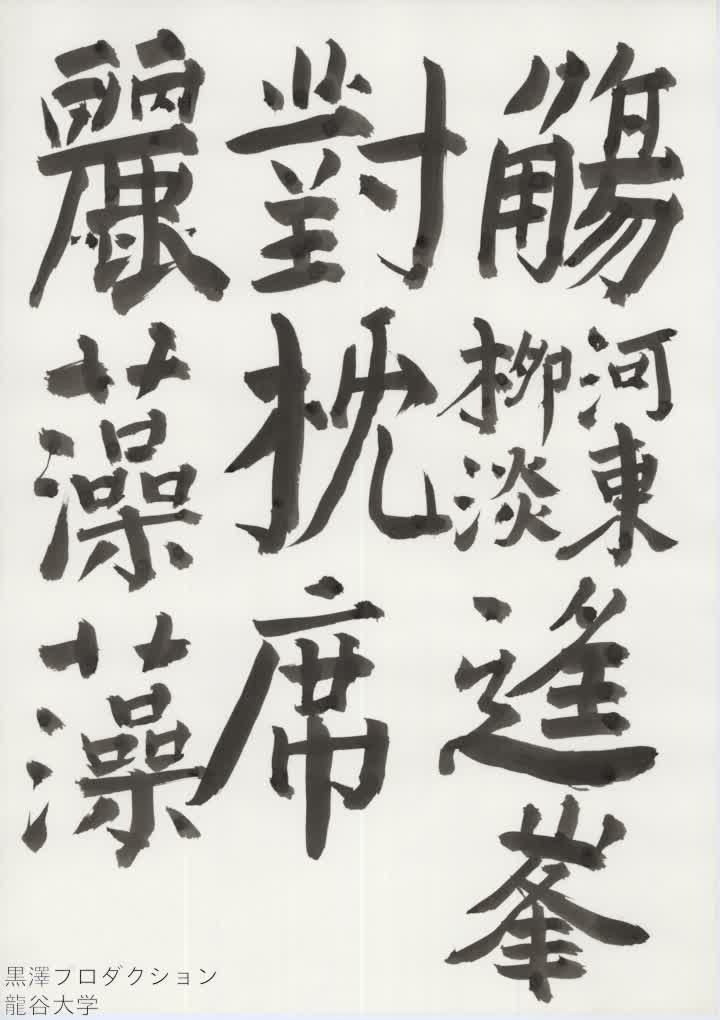 觴河東柳淡逢峯
對枕席
麗藻藻
黒澤プロダクション
龍谷大学